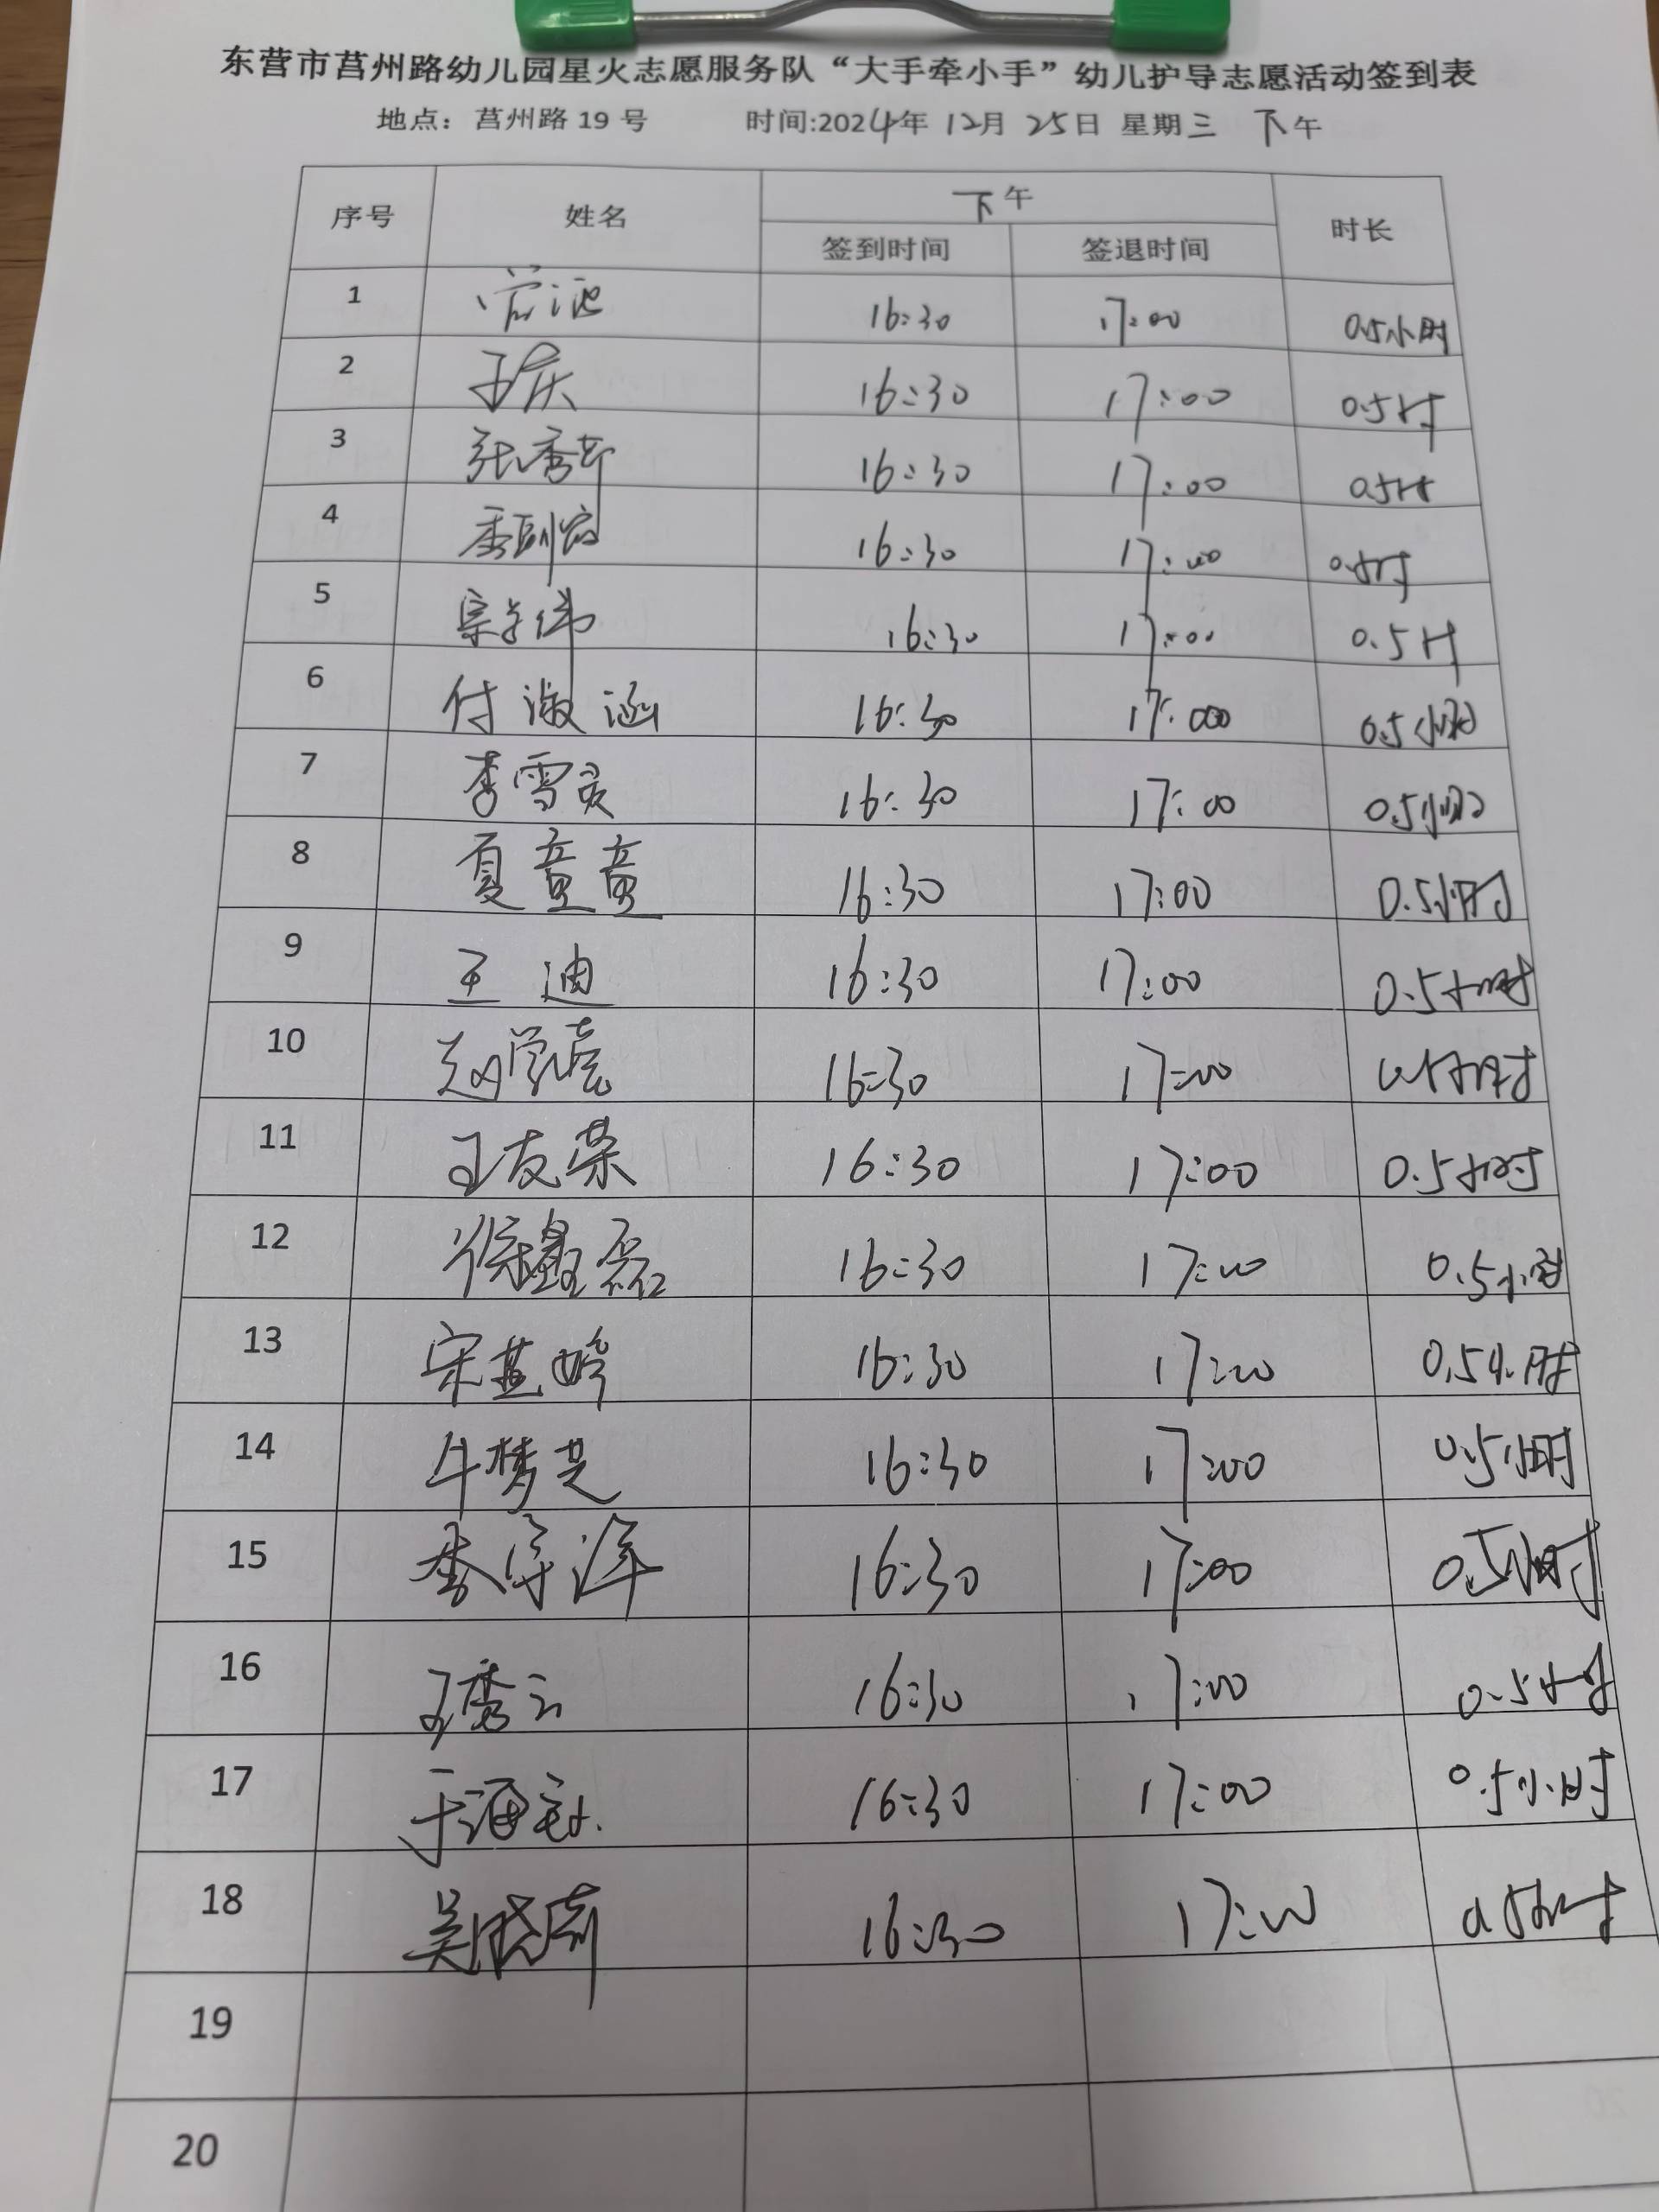 东营市莒州路幼儿园星火志愿服务队“大手牵小手”幼儿护导志愿活动签到表
地点：莒州路 19 号 时间:2024年 12月 25日 星期三 下午
序号 姓名 下午 时长
签到时间 签退时间
1 16:30 17:00 0.5小时
2 16:30 17:00 0.5时
3 16:30 17:00 0.5时
4 16:30 17:00 0.5时
5 16:30 17:00 0.5时
6 付淑涵 16:30 17:000 0.5小时
7 李雪灵 16:30 17:00 0.5小时
8 夏童童 16:30 17:00 0.5小时
9 王迪 16:30 17:00 0.5小时
10 16:30 17:00 0.5小时
11 王友荣 16:30 17:00 0.5小时
12 徐鑫磊 16:30 17:00 0.5小时
13 宋燕婷 16:30 17:00 0.5小时
14 牛梦芝 16:30 17:00 0.5小时
15 16:30 17:00 0.5小时
16 王秀云 16:30 17:00 0.5小时
17 16:30 17:00 0.5小时
18 吴晓菊 16:30 17:00 0.5小时
19
20